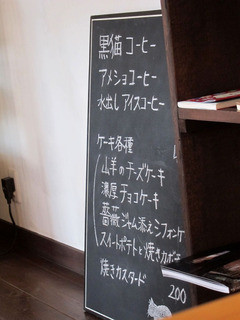 黒猫コーヒー
アメショコーヒー
水出しアイスコーヒー
ケーキ各種
山羊のチーズケーキ
濃厚チョコケーキ
薔薇ジャム添えシフォンケ
スイートポテトと焼きカボチ
焼きカスタード
200